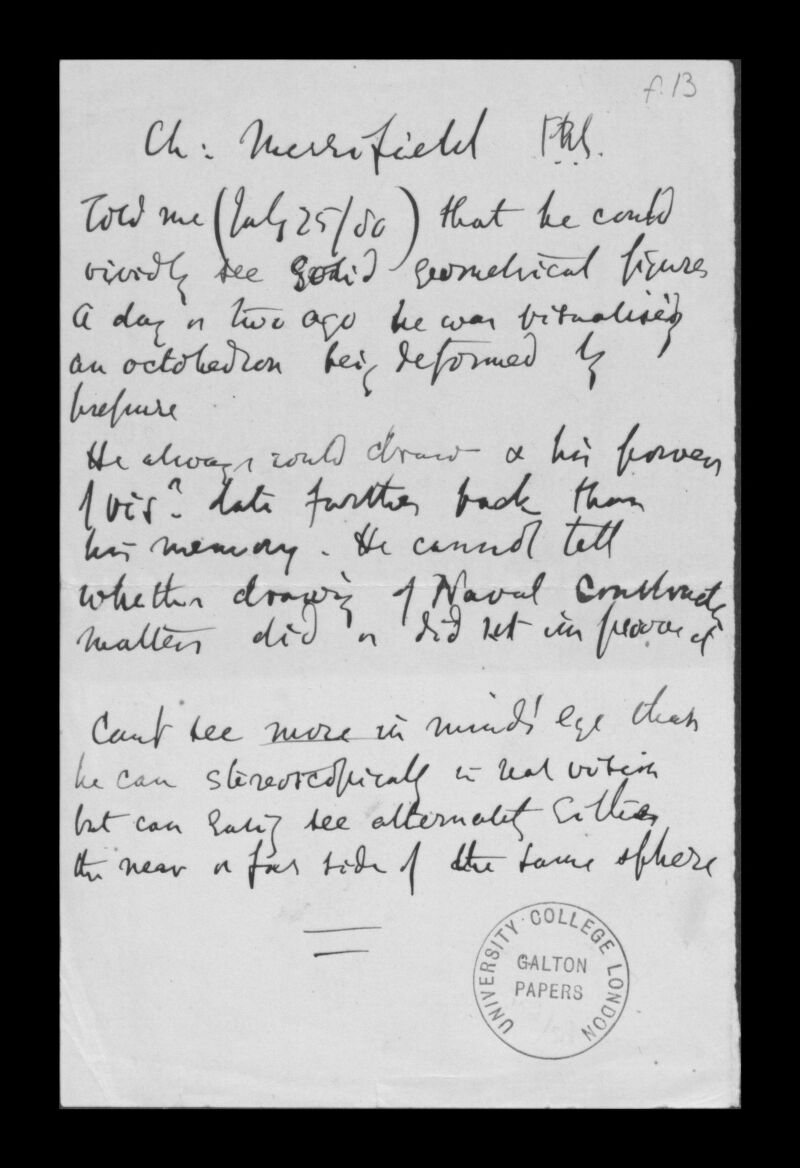 f. 13
Ch: Merrifield FRS.
Told me (July 25/80) that he could
vividly see solid geometrical figures
A day or two ago he was visualising
an octohedron being deformed by
pressure
He always could draw & his powers
of vis? date further back than
his memory. He cannot tell
whether drawing of Naval Constructe
matters did or did not improve it
Cant see more in mind's eye than
he can stereoscopically in real vision
but can easily see alternately either
the near or far side of the same sphere
UNIVERSITY COLLEGE LONDON
GALTON
PAPERS